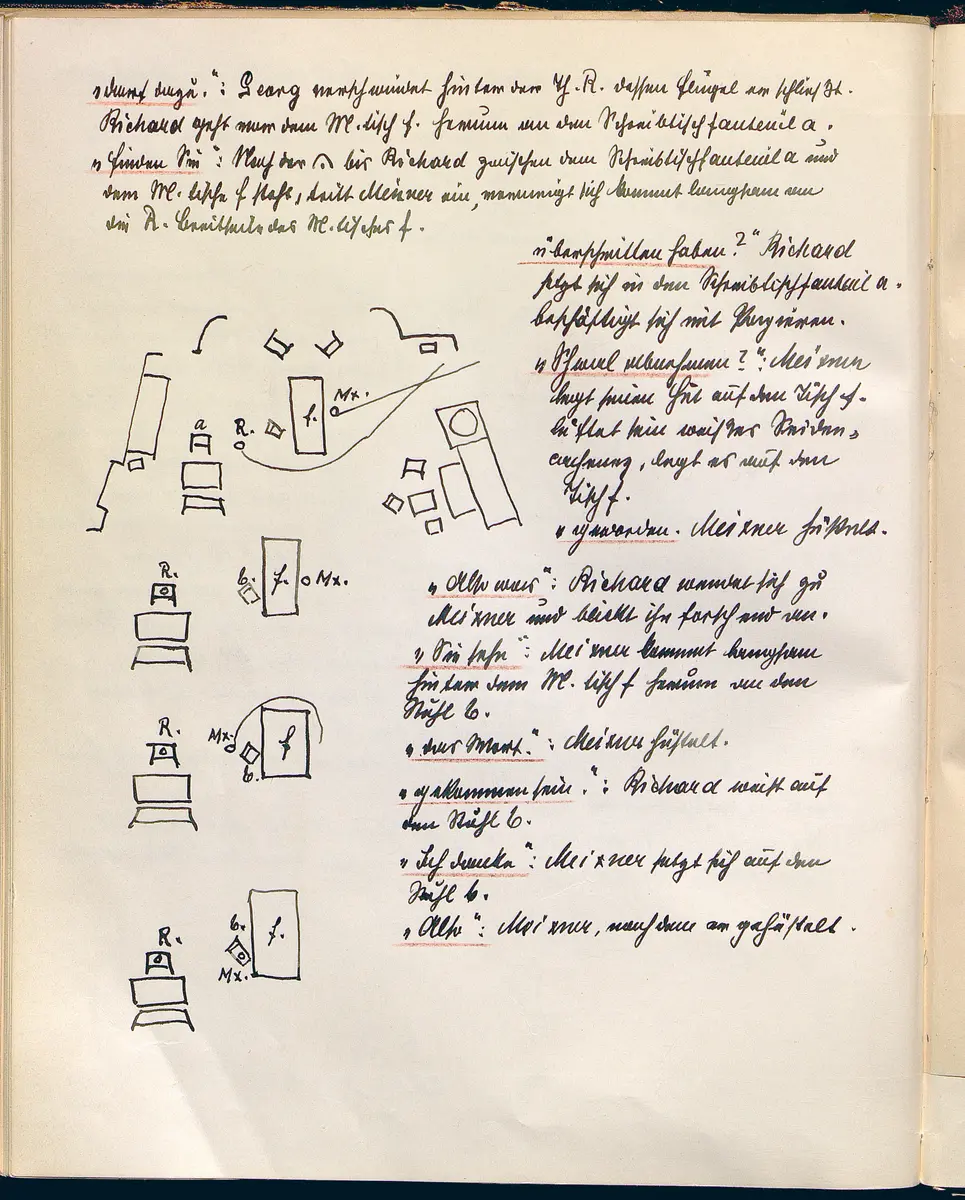 „darf dazu.“: Georg verschwindet hinter der Th. R. dessen Flügel er schließt.
Richard geht vor dem M. tisch f. herum an den Schreibtischfauteuil a.
„finden Sie“: Nach der ⌒ bis Richard zwischen dem Schreibtischfauteuil a und
dem M. tische f steht, tritt Meixner ein, verneigt sich kommt langsam an
die R. Breitseite des M. tisches f.
überschritten haben?“ Richard
setzt sich in den Schreibtischfauteuil a.
beschäftigt sich mit Papieren.
„Schwal abnehmen?“: Meixner
legt seinen Hut auf den Tisch f.
lüftet sein weißes Seiden-
cachenez, legt es auf den
Tisch f.
„geworden. Meixner hüstelt.
a
R.
f.
Mx.
R.
b.
f.
Mx.
„Also was“: Richard wendet sich zu
Meixner und blickt ihn forschend an.
„Sie sehn“: Meixner kommt langsam
hinter dem M. tisch f herum an den
Stuhl b.
R.
Mx.
b.
f
„das Wort.“: Meixner hüstelt.
„gekommen sein.“: Richard weist auf
den Stuhl b.
„Ich danke“: Meixner setzt sich auf den
Stuhl b.
„Also“: Meixner, nachdem er gehüstelt.
R.
b.
Mx.
f.